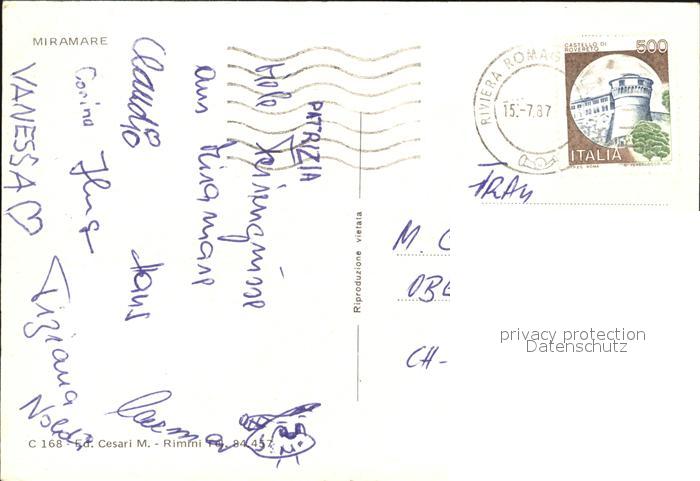 MIRAMARE
PATRIZIA
Viele Feriengrüsse
aus Miramare
Claudio
Hans
Corina
VANESSA
Tiziana
C 168 - Ed. Cesari M. - Rimini Tel. 84.457
Riproduzione vietata
RIVIERA ROMAG
15.-7.87
CASTELLO DI
ROVERETO
500
ITALIA
M. C
OBE
CH-
privacy protection
Datenschutz